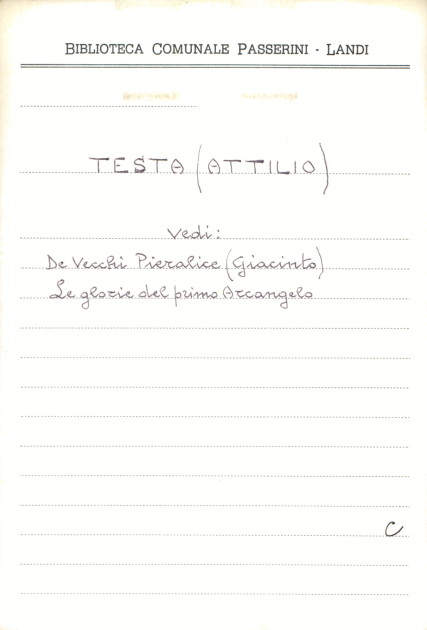 BIBLIOTECA COMUNALE PASSERINI - LANDI
TESTA (ATTILIO)
Vedi:
De Vecchi Pieralice (Giacinto)
Le glorie del primo Arcangelo
C